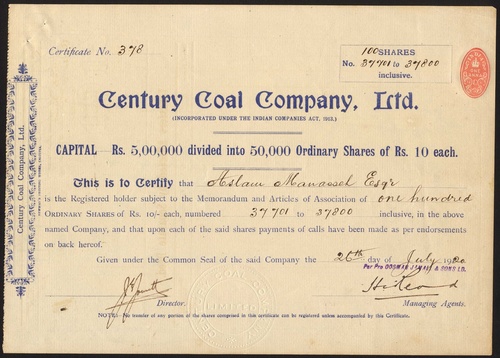 Certificate No. 378
100 SHARES
No. 37701 to 37800
inclusive.
Century Coal Company, Ltd.
(INCORPORATED UNDER THE INDIAN COMPANIES ACT, 1913.)
CAPITAL — Rs. 5,00,000 divided into 50,000 Ordinary Shares of Rs. 10 each.
This is to Certify that Aslam Manasseh Esqr
is the Registered holder subject to the Memorandum and Articles of Association of one hundred
ORDINARY SHARES of Rs. 10/- each, numbered 37701 to 37800 inclusive, in the above
named Company, and that upon each of the said shares payments of calls have been made as per endorsements
on back hereof.
Given under the Common Seal of the said Company the 26th day of July 1920
Per Pro OOSMAN JAMAL & SONS LD.
Director.
Managing Agents.
NOTE:—No transfer of any portion of the shares comprised in this certificate can be registered unless accompanied by this Certificate.
Century Coal Company, Ltd.